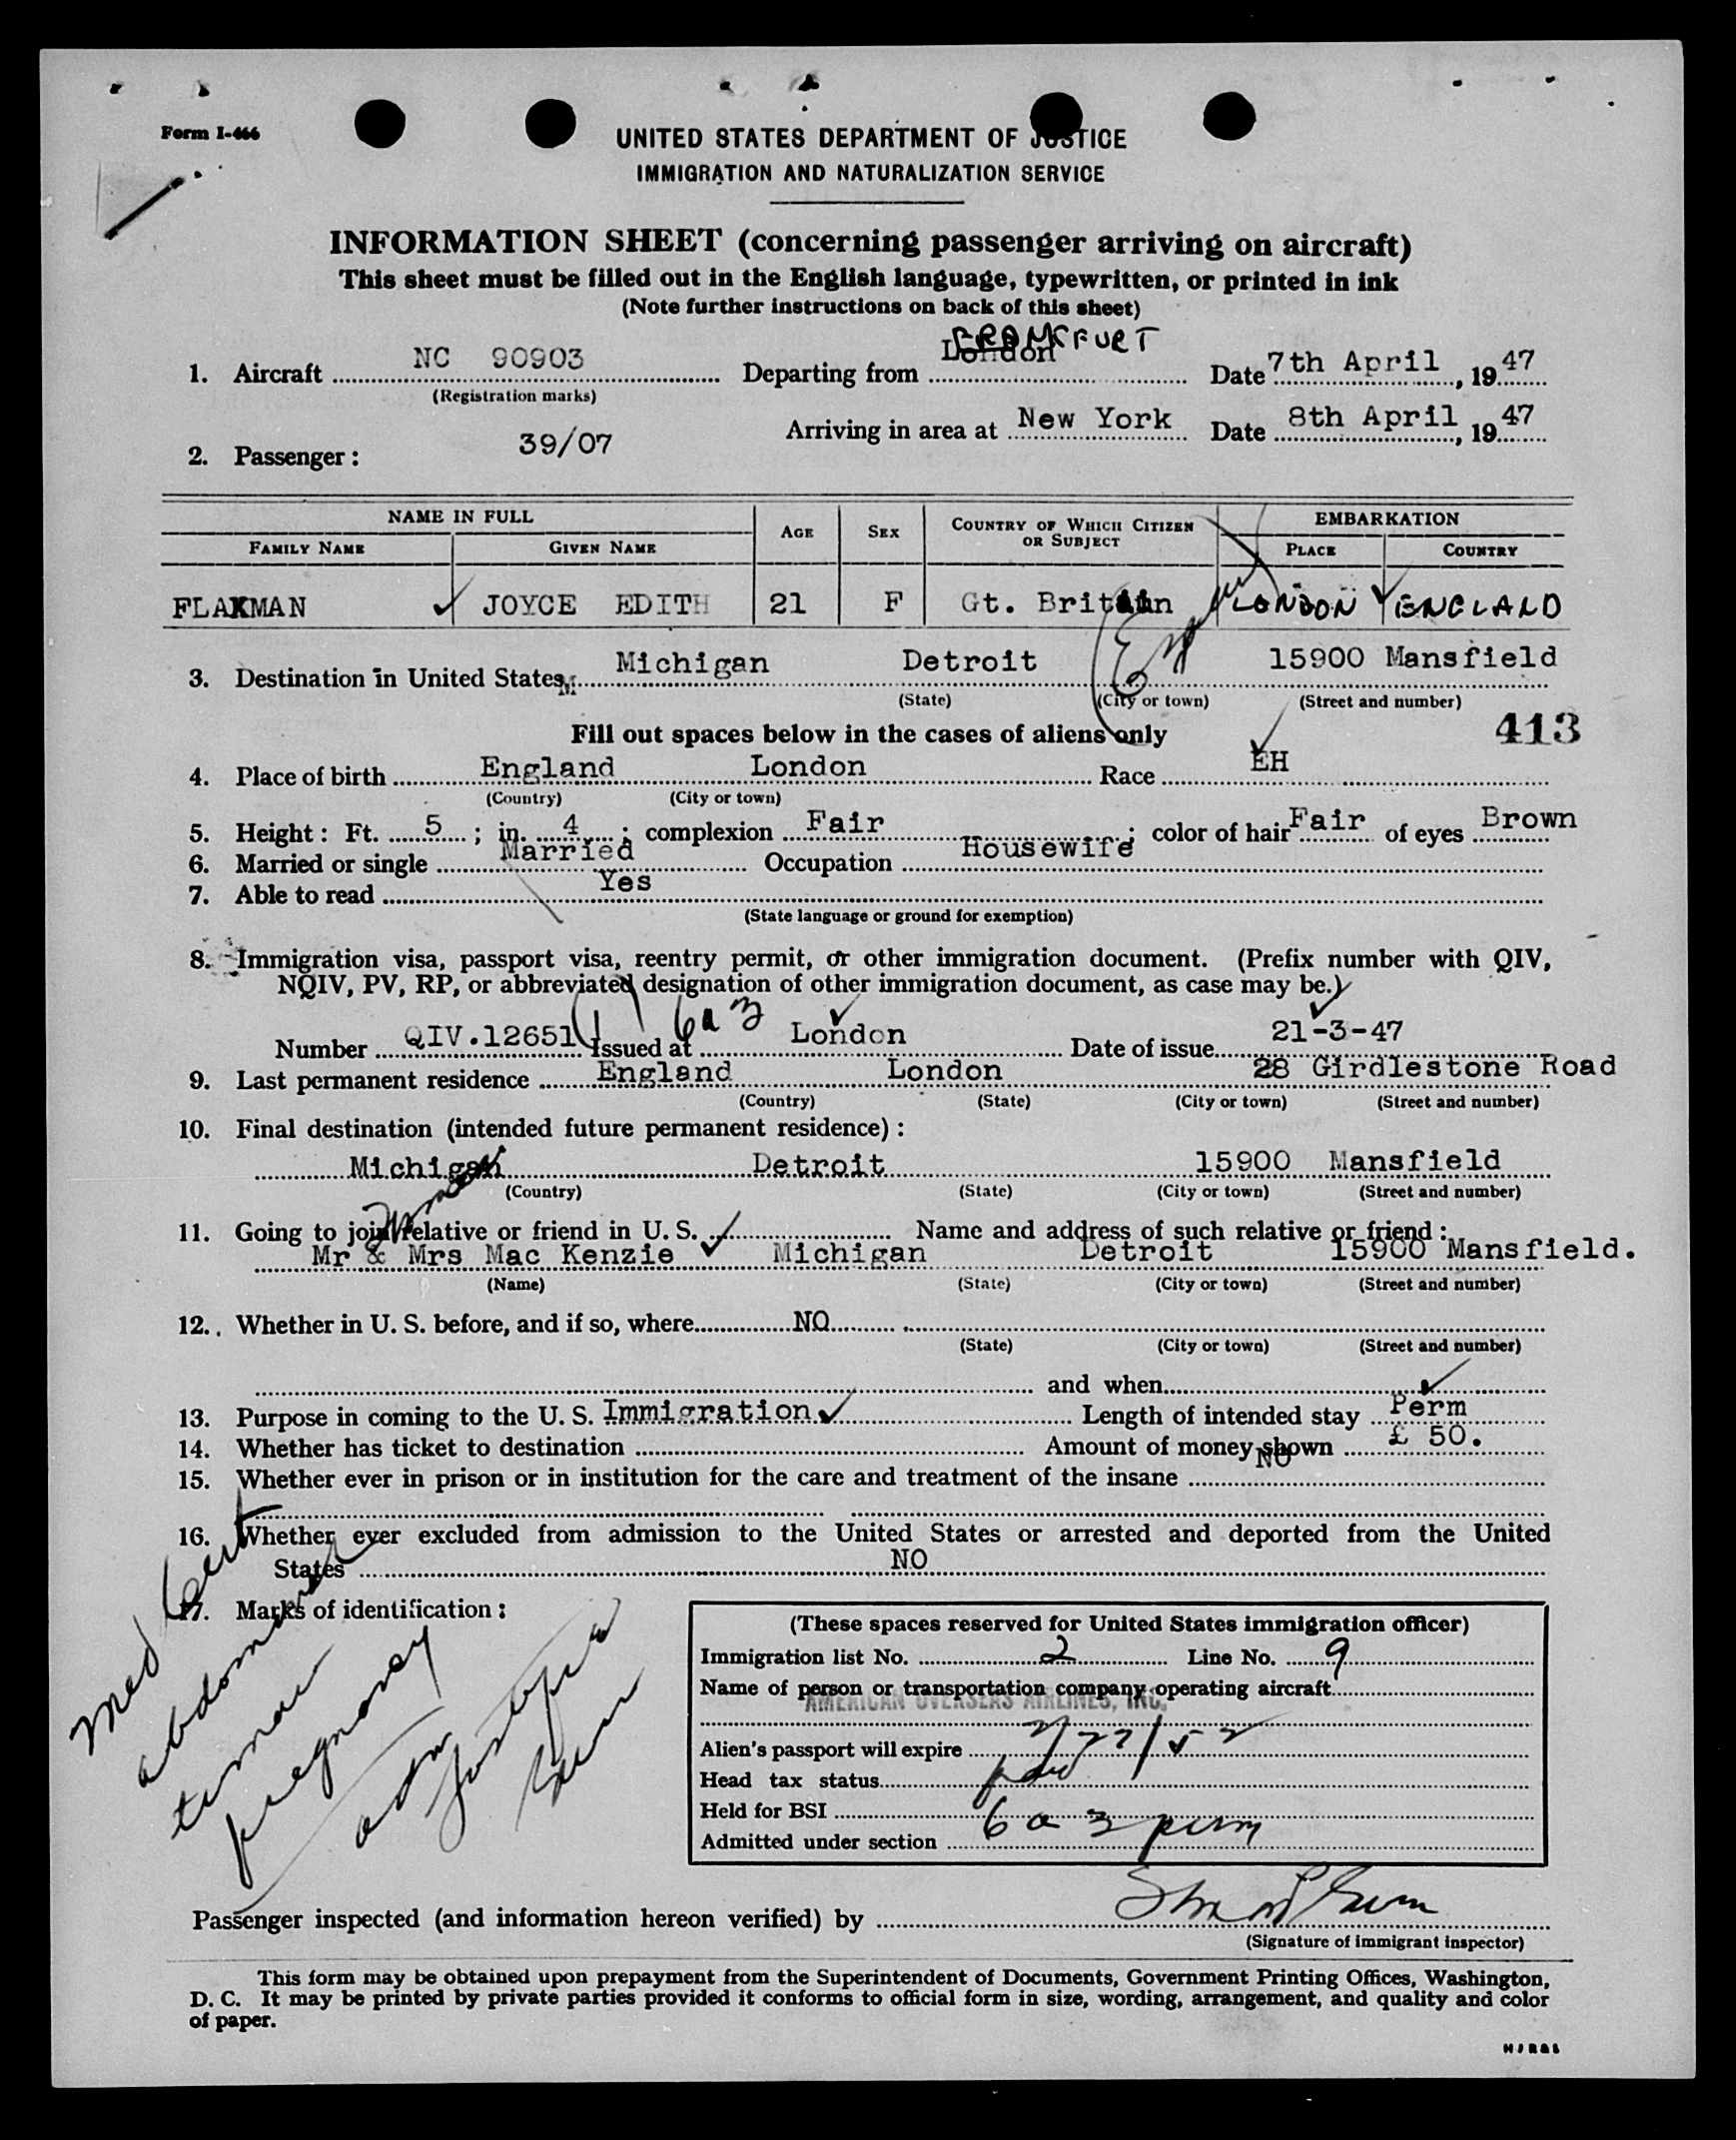 Form I-466
UNITED STATES DEPARTMENT OF JUSTICE
IMMIGRATION AND NATURALIZATION SERVICE
INFORMATION SHEET (concerning passenger arriving on aircraft)
This sheet must be filled out in the English language, typewritten, or printed in ink
(Note further instructions on back of this sheet)
FRANKFURT
1. Aircraft NC 90903 Departing from London Date 7th April, 1947
(Registration marks)
Arriving in area at New York Date 8th April, 1947
2. Passenger: 39/07
NAME IN FULL AGE SEX COUNTRY OF WHICH CITIZEN OR SUBJECT EMBARKATION
FAMILY NAME GIVEN NAME PLACE COUNTRY
FLAXMAN JOYCE EDITH 21 F Gt. Britain LONDON ENGLAND
3. Destination in United States Michigan Detroit 15900 Mansfield
(State) (City or town) (Street and number)
Fill out spaces below in the cases of aliens only 413
4. Place of birth England London Race EH
(Country) (City or town)
5. Height: Ft. 5; in. 4; complexion Fair; color of hair Fair of eyes Brown
6. Married or single Married Occupation Housewife
7. Able to read Yes
(State language or ground for exemption)
8. Immigration visa, passport visa, reentry permit, or other immigration document. (Prefix number with QIV,
NQIV, PV, RP, or abbreviated designation of other immigration document, as case may be.)
6a3
Number QIV.12651 Issued at London Date of issue 21-3-47
9. Last permanent residence England London 28 Girdlestone Road
(Country) (State) (City or town) (Street and number)
10. Final destination (intended future permanent residence):
Michigan Detroit 15900 Mansfield
(Country) (State) (City or town) (Street and number)
11. Going to join relative or friend in U. S. Name and address of such relative or friend:
Mr & Mrs Mac Kenzie Michigan Detroit 15900 Mansfield.
(Name) (State) (City or town) (Street and number)
12. Whether in U. S. before, and if so, where NO
(State) (City or town) (Street and number)
and when
13. Purpose in coming to the U. S. Immigration Length of intended stay Perm
14. Whether has ticket to destination Amount of money shown £ 50.
15. Whether ever in prison or in institution for the care and treatment of the insane NO
16. Whether ever excluded from admission to the United States or arrested and deported from the United
States NO
17. Marks of identification:
Med Cert
abdominal
tumor
pregnancy
(These spaces reserved for United States immigration officer)
Immigration list No. 2 Line No. 9
Name of person or transportation company operating aircraft
AMERICAN OVERSEAS AIRLINES, INC.
Alien's passport will expire 2/27/52
Head tax status paid
Held for BSI
Admitted under section 6a3 perm
Passenger inspected (and information hereon verified) by
(Signature of immigrant inspector)
This form may be obtained upon prepayment from the Superintendent of Documents, Government Printing Offices, Washington,
D. C. It may be printed by private parties provided it conforms to official form in size, wording, arrangement, and quality and color
of paper.